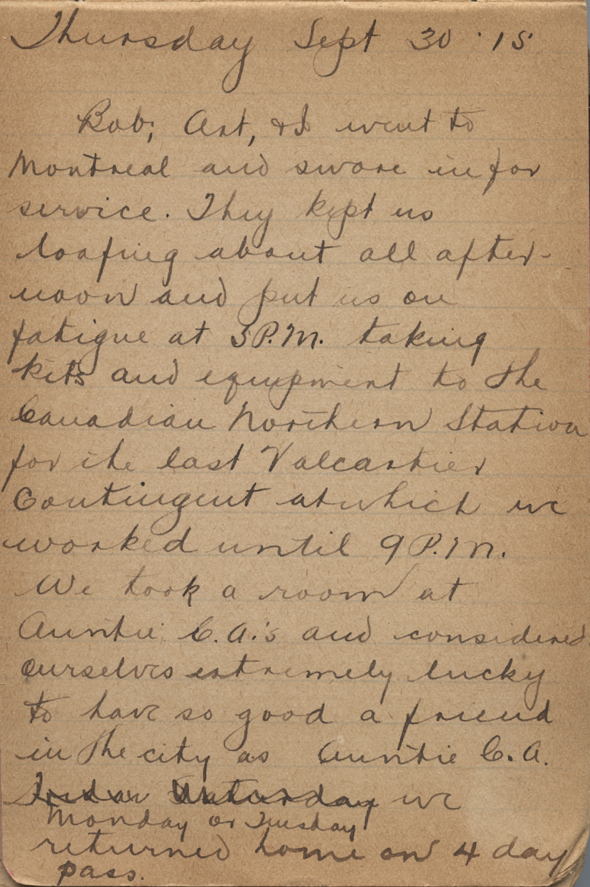 Thursday Sept 30 '15
Bob, Art, & I went to
Montreal and swore in for
service. They kept us
loafing about all after-
noon and put us on
fatigue at 3 P.M. taking
kits and equipment to the
Canadian Northern Station
for the last Valcartier
Contingent at which we
worked until 9 P.M.
We took a room at
Auntie C.A.'s and considered
ourselves extremely lucky
to have so good a friend
in the city as Auntie C.A.
Saturday we
Monday or Tuesday
returned home on 4 day
pass.